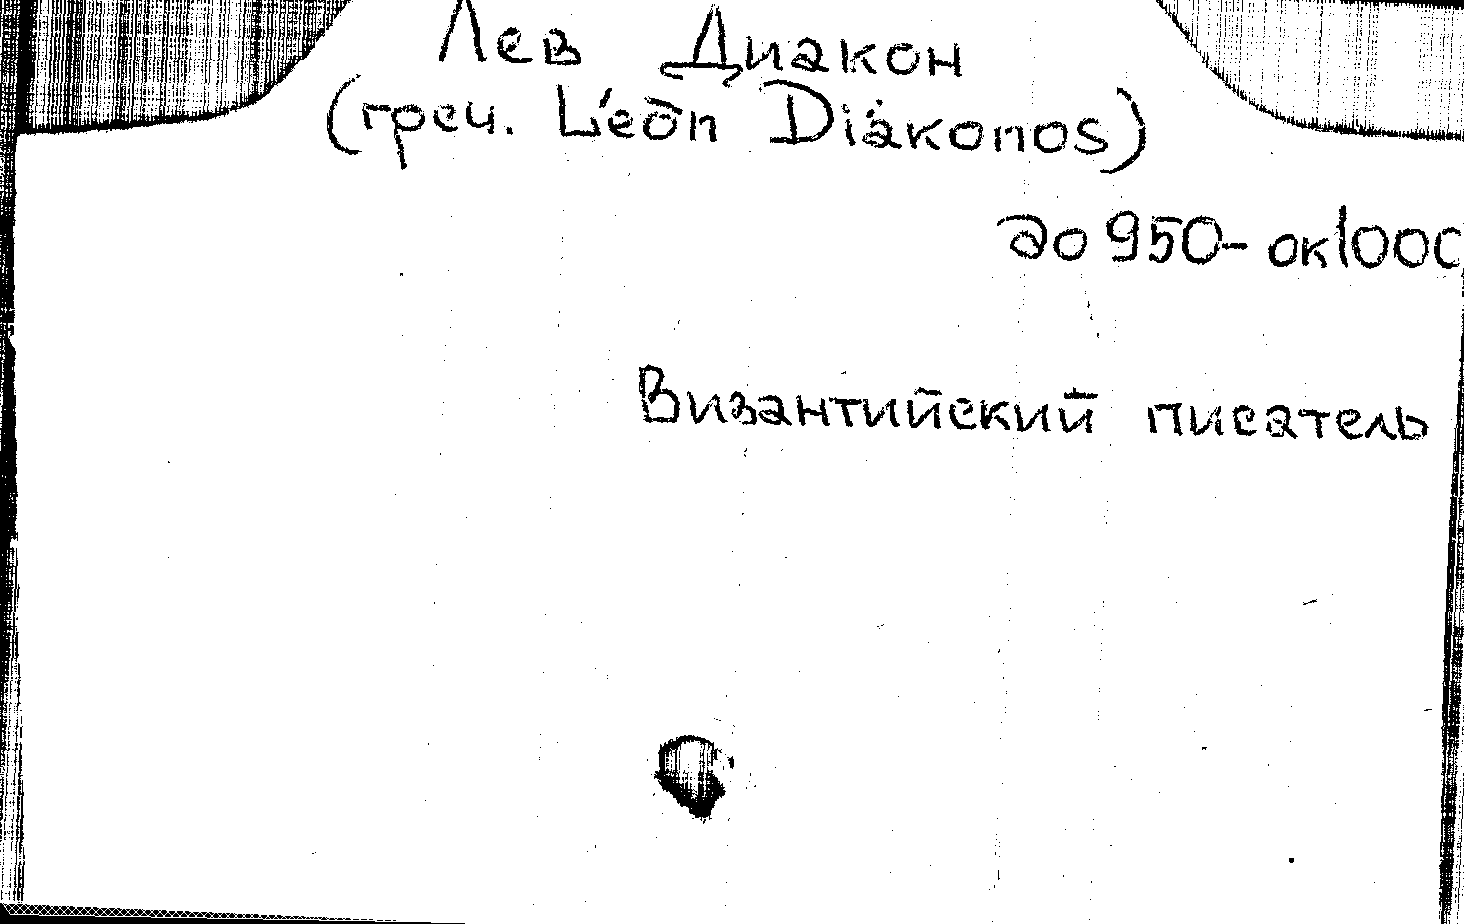 Лев Диакон
(греч. Léōn Diákonos)
до 950- ок1000
Византийский писатель